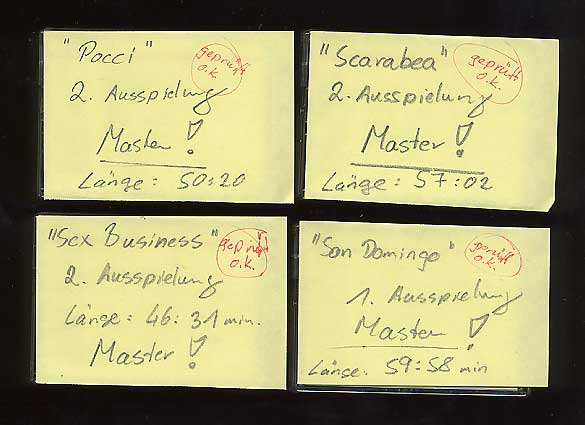 "Pocci"
geprüft
o.k.
2. Ausspielung
Master!
Länge: 50:20
"Scarabea"
geprüft
o.k.
2. Ausspielung
Master!
Länge: 57:02
"Sex Business"
geprüft
o.k.
2. Ausspielung
Länge: 46:31 min.
Master!
"San Domingo"
geprüft
o.k.
1. Ausspielung
Master!
Länge: 59:58 min